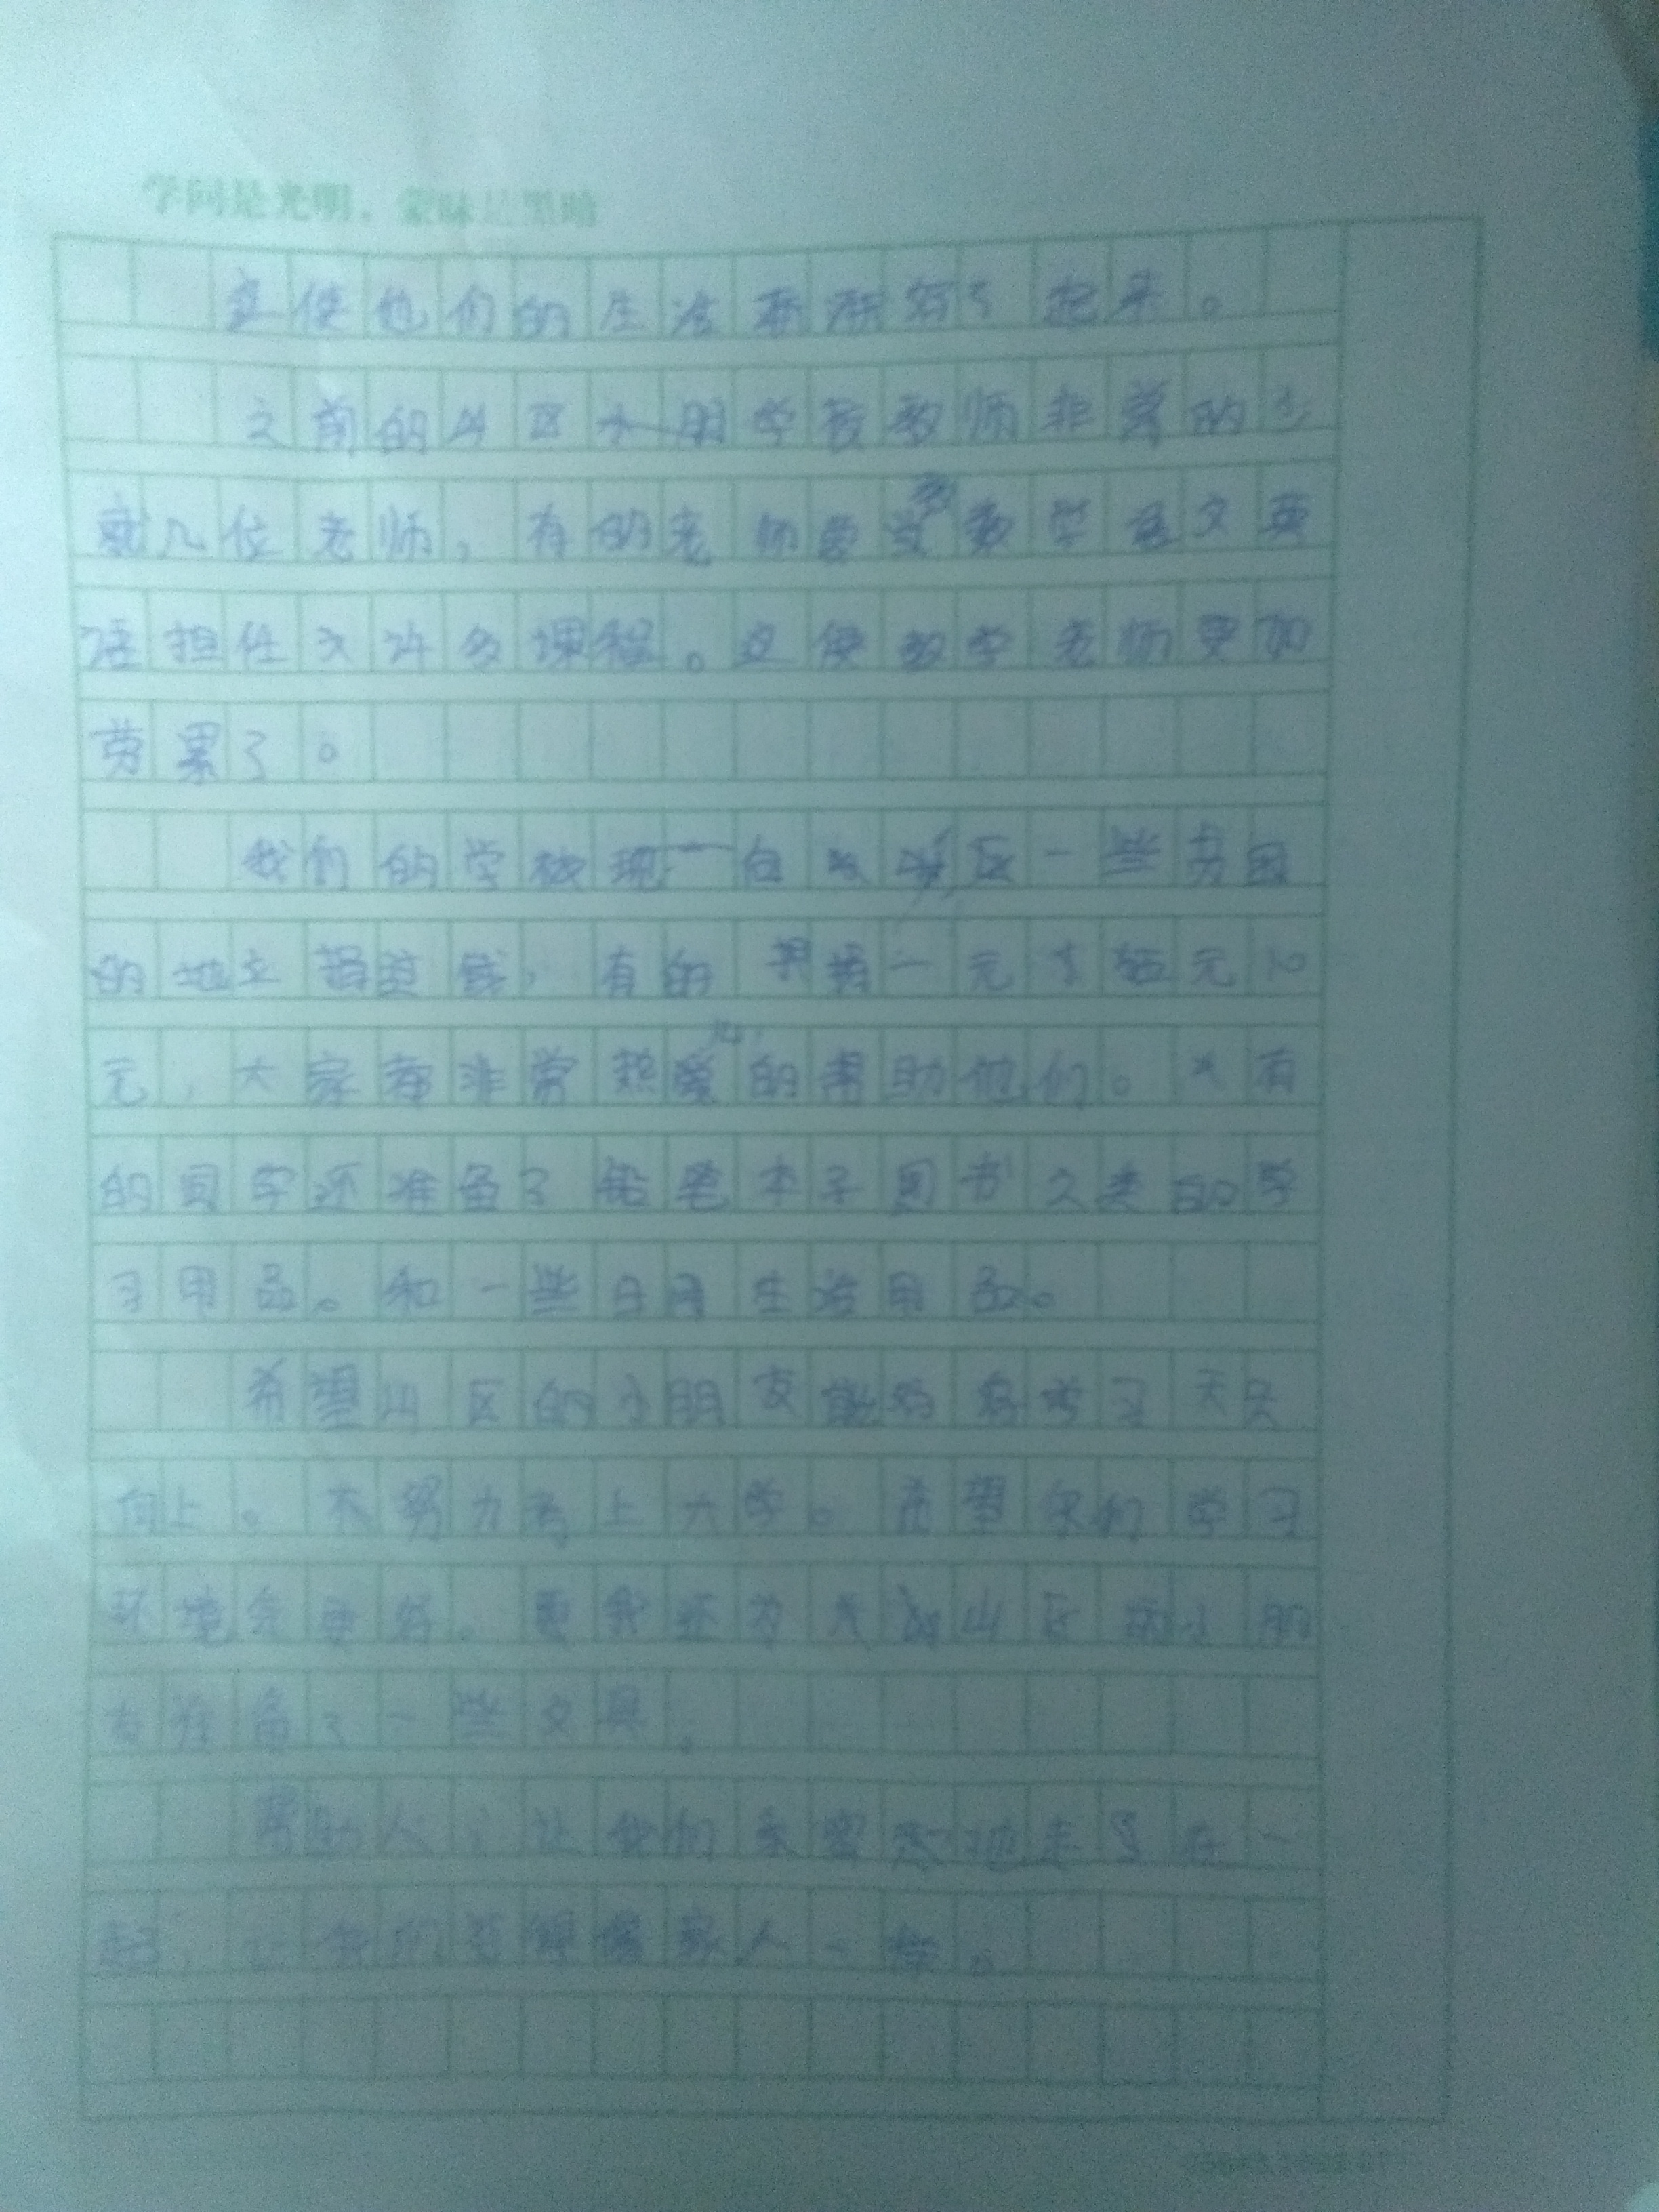 学问是光明，蒙昧是黑暗
这使他们的生活渐渐好了起来。
之前的山区小朋学校教师非常的少
就几位老师，有的老师要教数学语文英
语担任了许多课程。这使教学老师更加
劳累了。
我们的学校现一白山区一些贫困
的地方捐过钱，有的捐一元五元10
元，大家都非常热心的帮助他们。有
的同学还准备了铅笔本子图书之类的学
习用品。和一些日用生活用品。
希望山区的小朋友能好好学习天天
向上。努力考上大学。希望你们学习
环境会更好。我还为大山区的小朋
友准备了一些文具。
帮助人，让我们亲密地走在一
起，让我们像家人一样。